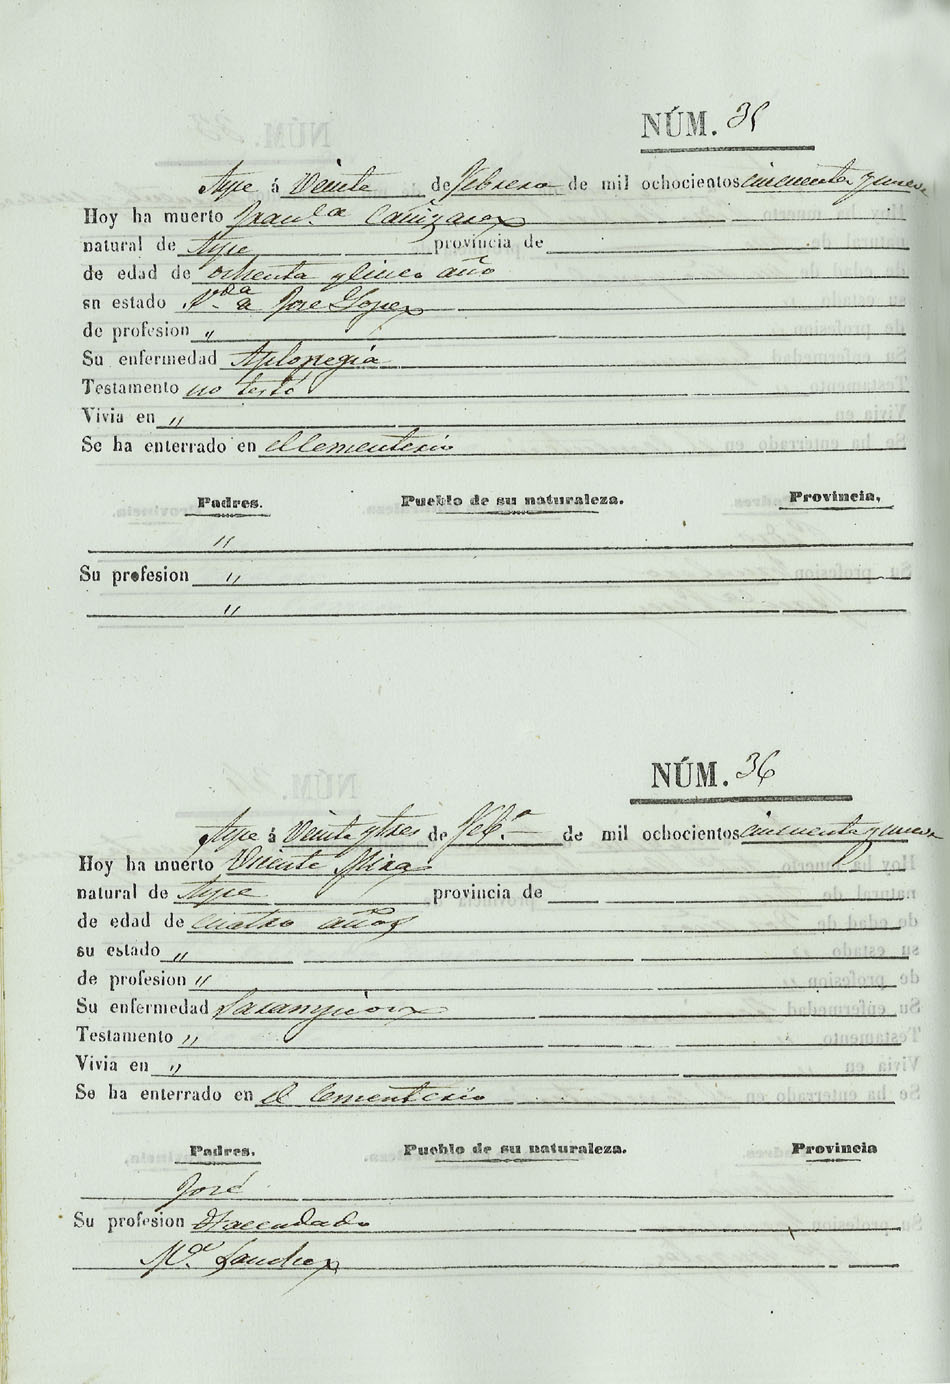 NÚM. 35
Aspe á Veinte de Febrero de mil ochocientos cincuenta y nueve
Hoy ha muerto Fran.ca Cañizarez
natural de Aspe provincia de
de edad de ochenta y cinco año
sn estado V.da de Jose Lopez
de profesion "
Su enfermedad Aplopegia
Testamento no testó
Vivia en "
Se ha enterrado en el Cementerio
Padres. Pueblo de su naturaleza. Provincia,
"
Su profesion "
"
NÚM. 36
Aspe á Veinte y tres de Feb.o de mil ochocientos cincuenta y nueve
Hoy ha muerto Vicente Mira
natural de Aspe provincia de
de edad de cuatro años
su estado "
de profesion "
Su enfermedad Sarampion
Testamento "
Vivia en "
Se ha enterrado en el Cementerio
Padres. Pueblo de su naturaleza. Provincia
José
Su profesion Hacendado
M.a Sanchez